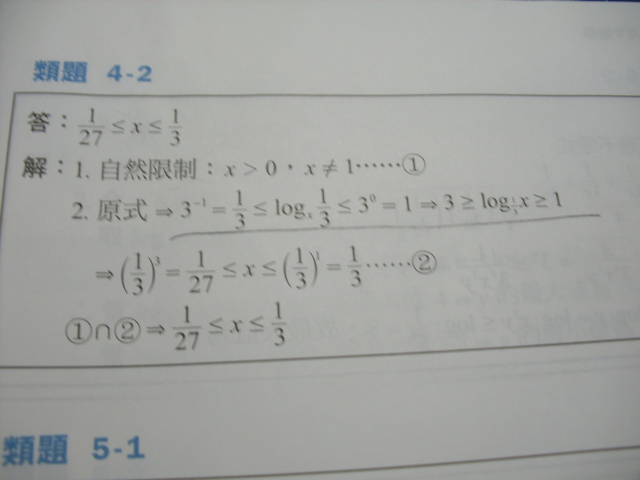 類題 4-2
答：1/27 ≤ x ≤ 1/3
解：1. 自然限制：x > 0，x ≠ 1……①
2. 原式 ⇒ 3⁻¹ = 1/3 ≤ logₓ 1/3 ≤ 3⁰ = 1 ⇒ 3 ≥ log_{1/3} x ≥ 1
⇒ (1/3)³ = 1/27 ≤ x ≤ (1/3)¹ = 1/3……②
①∩② ⇒ 1/27 ≤ x ≤ 1/3
類題 5-1